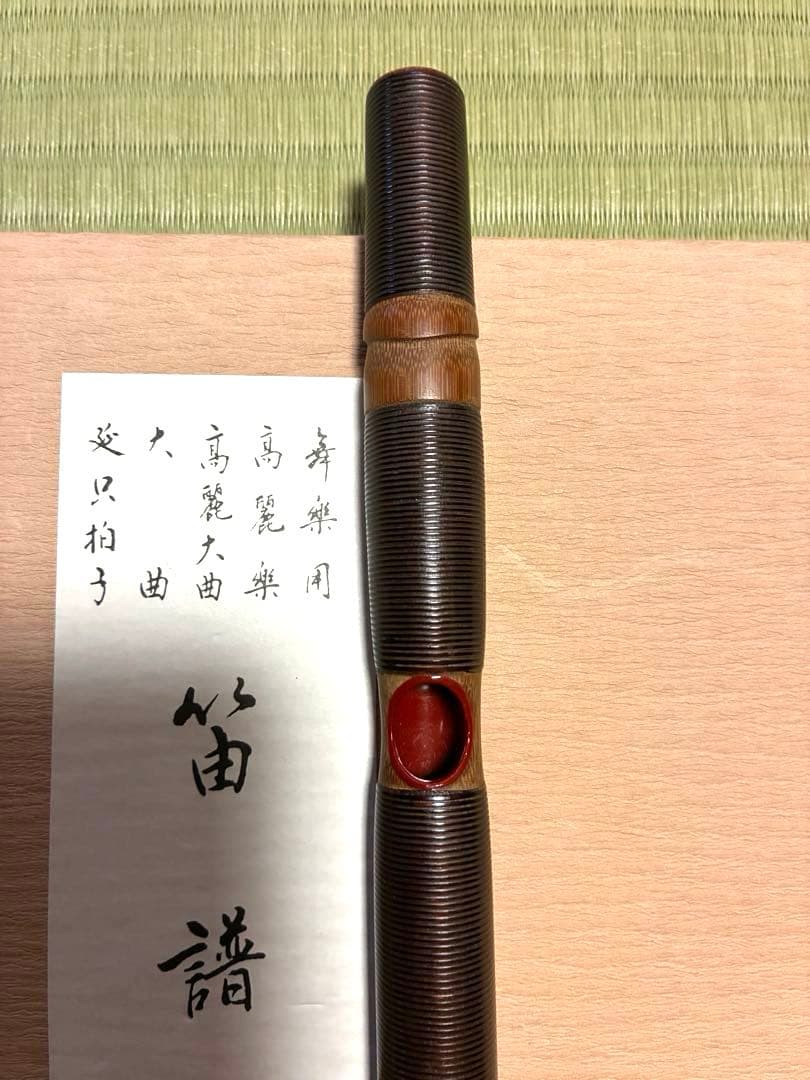 舞樂用
高麗樂
高麗大曲
大曲
延只拍子
笛譜